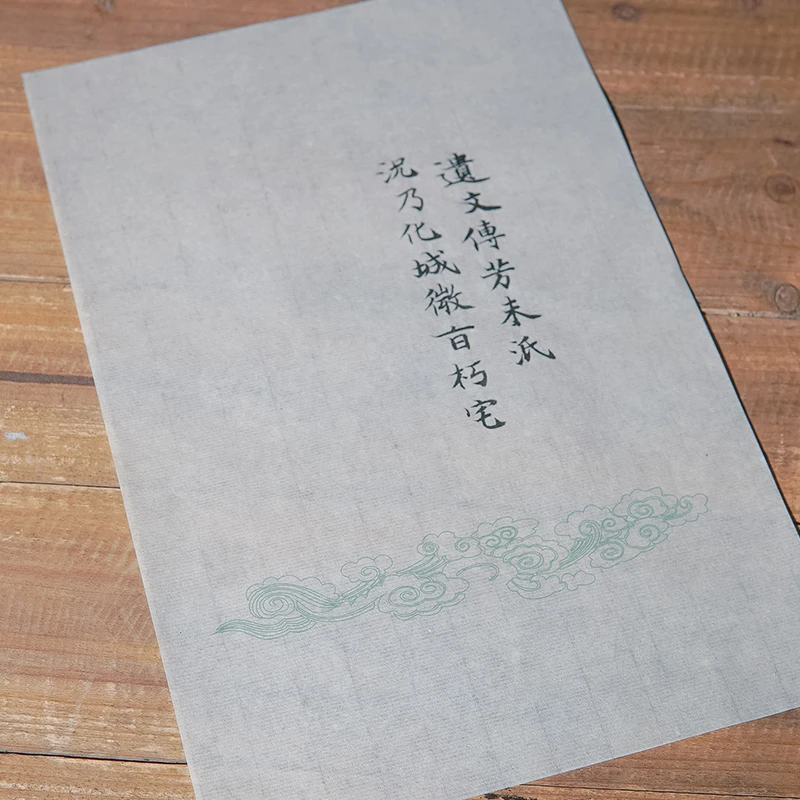 遺文傳芳未泯
況乃化城微言朽宅